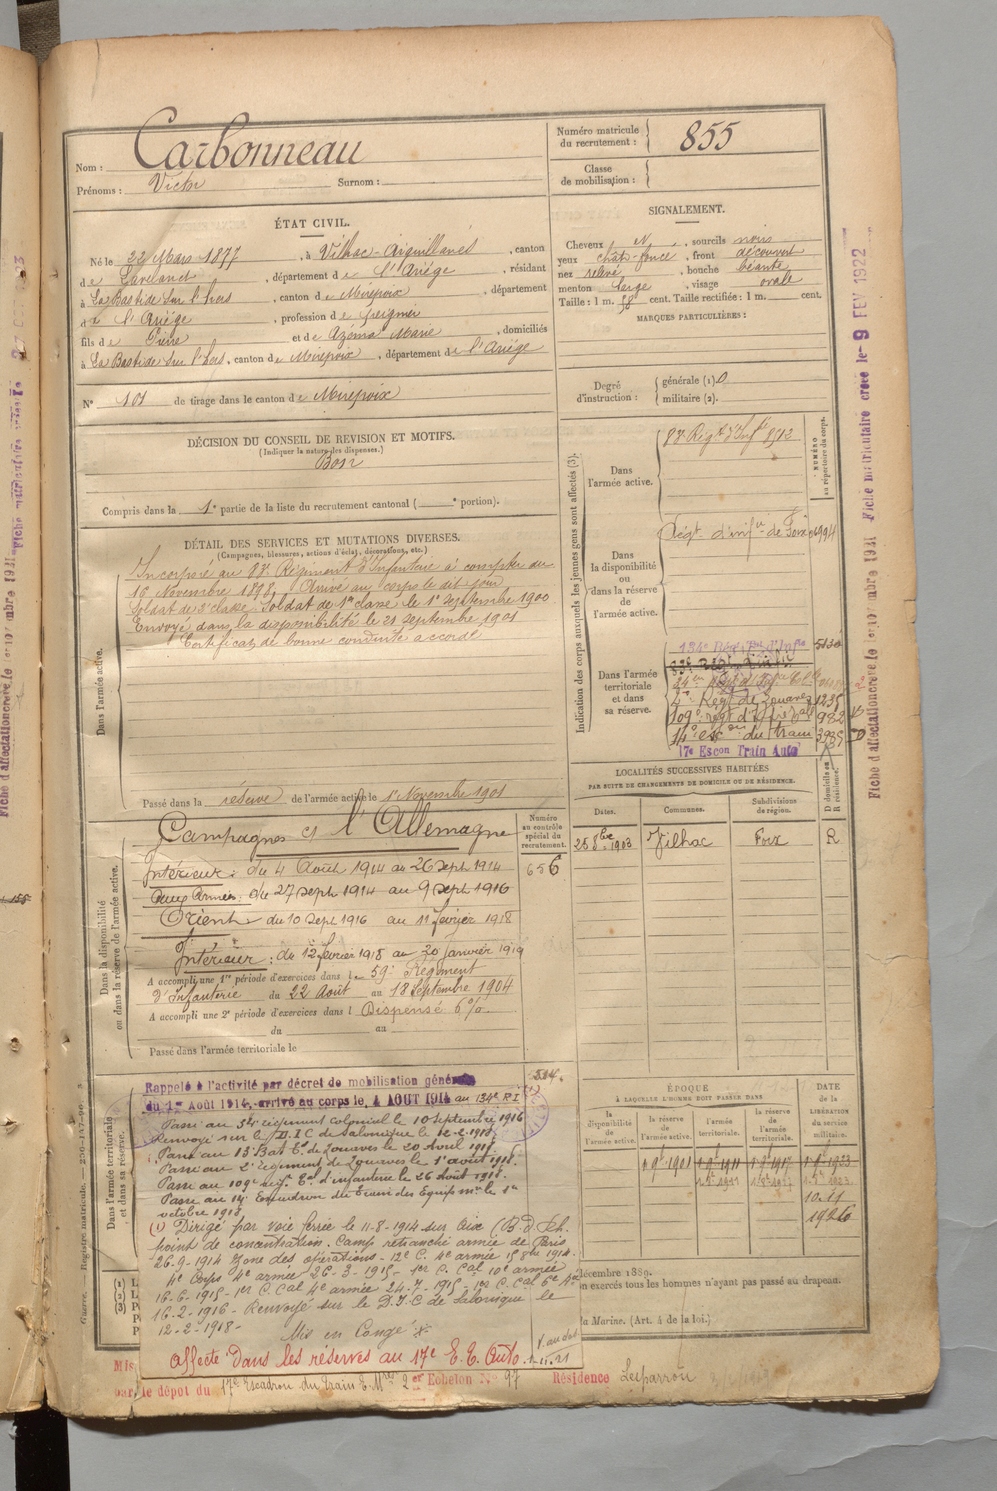 Nom : Carbonneau
Prénoms : Victor Surnom :
Numéro matricule du recrutement : 855
Classe de mobilisation :
ÉTAT CIVIL.
Né le 22 Mars 1877, à Vilhac-Aiguillanes, canton
de Lavelanet, département de l'Ariège, résidant
à La Bastide sur l'hers, canton de Mirepoix, département
de l'Ariège, profession de peignier
fils de Pierre et de Azéma Marie, domiciliés
à La Bastide sur l'hers, canton de Mirepoix, département de l'Ariège
N° 101 de tirage dans le canton de Mirepoix
SIGNALEMENT.
Cheveux N, sourcils noirs
yeux chât-foncé, front découvert
nez relevé, bouche béante
menton large, visage ovale
Taille : 1 m. 58 cent. Taille rectifiée : 1 m. cent.
MARQUES PARTICULIÈRES :
Degré d'instruction : générale (1) 0
militaire (2).
DÉCISION DU CONSEIL DE REVISION ET MOTIFS.
(Indiquer la nature des dispenses.)
Bon
Compris dans la 1e partie de la liste du recrutement cantonal ( e portion).
DÉTAIL DES SERVICES ET MUTATIONS DIVERSES.
(Campagnes, blessures, actions d'éclat, décorations, etc.)
Dans l'armée active.
Incorporé au 83e Régiment d'Infanterie à compter du
16 Novembre 1898, Arrivé au corps le dit jour
Soldat de 2e classe, Soldat de 1re classe le 1er Septembre 1900
Envoyé dans la disponibilité le 21 Septembre 1901
Certificat de bonne conduite accordé
Passé dans la réserve de l'armée active le 1er Novembre 1901
Indication des corps auxquels les jeunes gens sont affectés (3).
NUMÉRO au répertoire du corps.
Dans l'armée active.
83e Régt d'Infie 8512
Dans la disponibilité ou dans la réserve de l'armée active.
Régt. d'infie de Foix 04994
Dans l'armée territoriale et dans sa réserve.
134e Régt d'Infie
4e Régt de Zouaves 1235
109e régt d'Infie 982
14e esc on du train 3985
17e Escon Train Auto
LOCALITÉS SUCCESSIVES HABITÉES
PAR SUITE DE CHANGEMENTS DE DOMICILE OU DE RÉSIDENCE.
Dates. Communes. Subdivisions de région. D domicile ou R résidence.
25 8bre 1903 Vilhac Foix R
Dans la disponibilité ou dans la réserve de l'armée active.
Numéro au contrôle spécial du recrutement.
656
Campagnes c/ l'Allemagne
Intérieur : du 4 Août 1914 au 26 Sept 1914
aux Armées, du 27 sept 1914 au 9 sept 1916
Orient du 10 Sept 1916 au 11 février 1918
Intérieur : du 12 février 1918 au 20 janvier 1919
A accompli une 1re période d'exercices dans le 59e Régiment
d'Infanterie du 22 Août au 18 Septembre 1904
A accompli une 2e période d'exercices dans l Dispensé 6%
du au
Passé dans l'armée territoriale le
Dans l'armée territoriale et dans sa réserve.
Rappelé à l'activité par décret de mobilisation générale
du 1er Août 1914, arrivé au corps le, 4 AOUT 1914 au 134e R.I
Passé au 54e régiment colonial le 10 septembre 1916
Renvoyé sur le D.I.C de Salonique le 12-2-1918.
Passé au 13e Bat. de Zouaves le 20 Avril 1918.
Passé au 2e régiment de Zouaves le 1er août 1918.
Passé au 109e régt d'infanterie le 26 Août 1918.
Passé au 14e Escadron du Train des Équip mres le 1er
octobre 1918
(1) Dirigé par voie ferrée le 11-8-1914 sur Aix (B.d.Rh.
point de concentration. Camp retranché armée de Paris
26-9-1914 Zone des opérations - 12e C. 4e armée 15 8bre 1914.
4e Corps 4e armée 26-3-1915 - 1er C. Cal 10e armée
16-6-1915 - 1er C. Cal 4e armée 24-7-1915 - 1er C. Cal 6e Aée
16-2-1916 - Renvoyé sur le D.I.C de Salonique le
12-2-1918 -
Mis en Congé
Affecté dans les réserves au 17e E.T. Auto. 1-11-21
ÉPOQUE
À LAQUELLE L'HOMME DOIT PASSER DANS
la disponibilité de l'armée active. la réserve de l'armée active. l'armée territoriale. la réserve de l'armée territoriale.
DATE de la LIBÉRATION du service militaire.
1 9e 1901 1 9e 1911 1 9e 1917 1 9e 1923
1926
décembre 1889.
on exercés tous les hommes n'ayant pas passé au drapeau.
la Marine. (Art. 4 de la loi.)
par le dépôt du 17e Escadron du Train E. Mres 2er Echelon N° 97 Résidence Lesparrou
Fiche matriculaire créée le - 9 FEV 1922
Fiche d'affectation créée le 1er novembre 1931